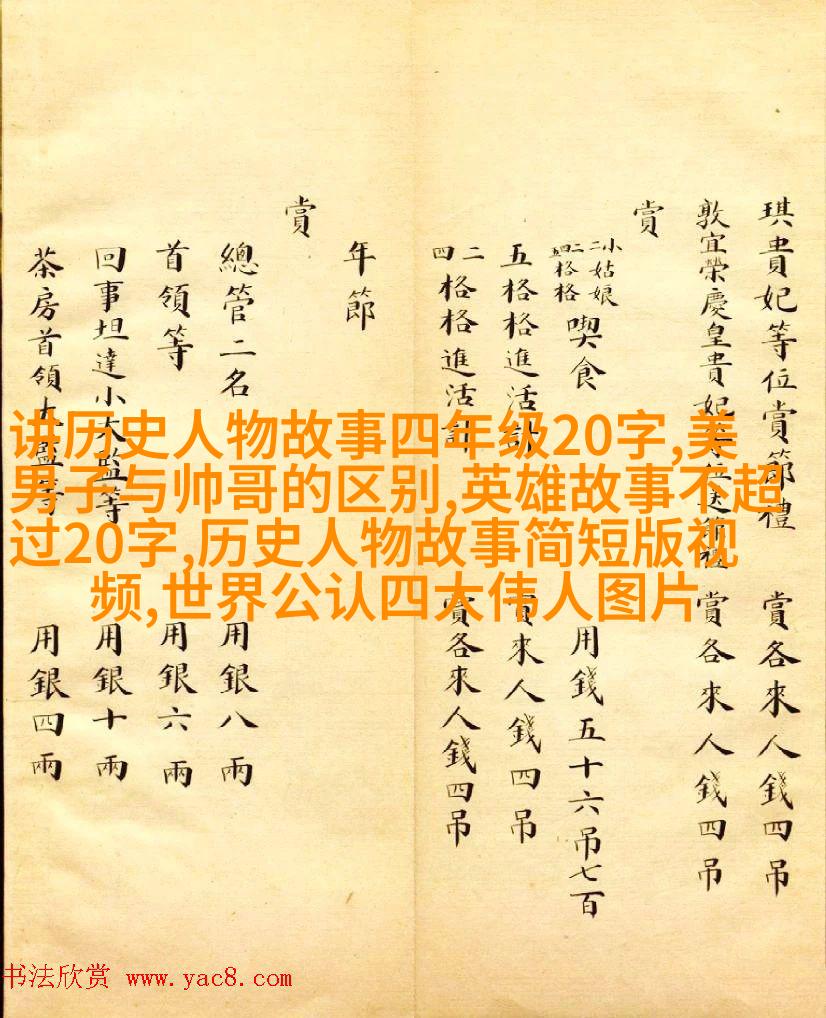 琪貴妃等位賞節禮 賞各來人錢四吊
敦宜榮慶皇貴妃等位送節禮 賞各來人錢四吊
賞
小姑娘
二二格格
四格格
喫食 用錢五十六吊七百
五格格進活計 賞來人錢四吊
二
四
格格進活計 賞各來人錢四吊
年節
賞
總管二名 用銀八兩
首領等 用銀六兩
回事坦達小太監等 用銀十兩
茶房首領太監等 用銀四兩
讲历史人物故事四年级20字,美
男子与帅哥的区别,英雄故事不超
过20字,历史人物故事简短版视
频,世界公认四大伟人图片
书法欣赏 www.yac8.com